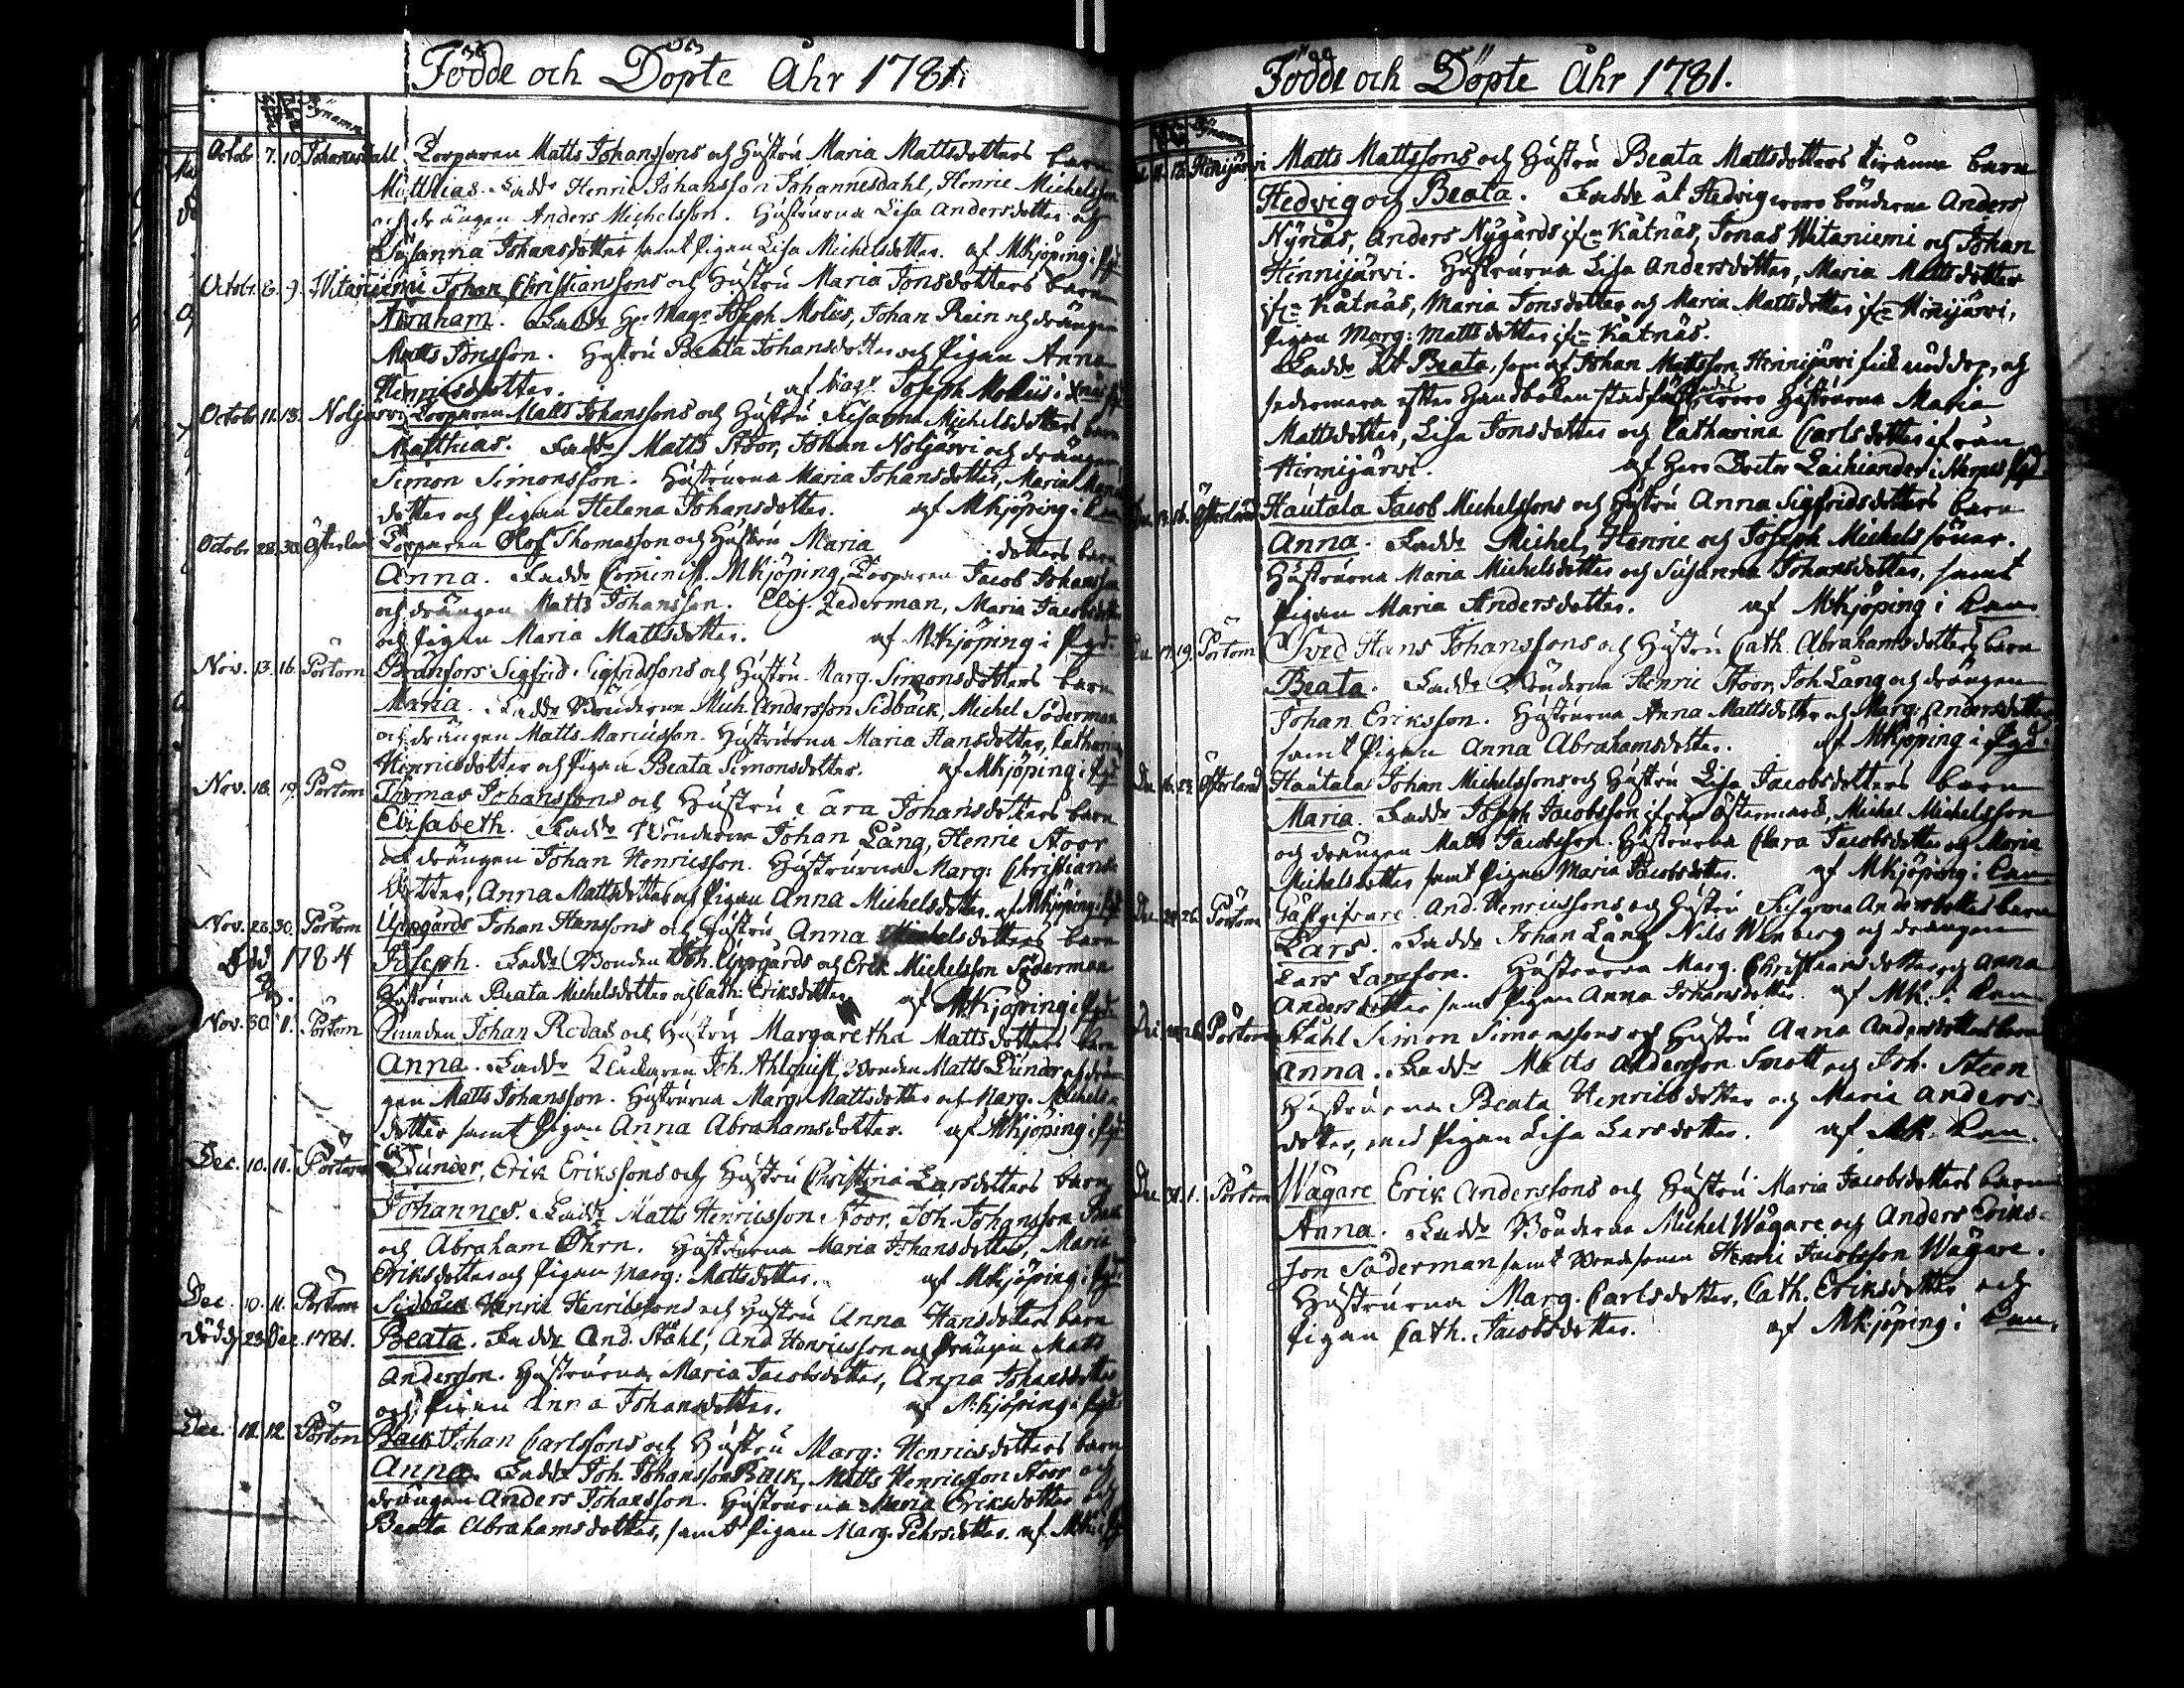 Födde och Döpte Åhr 1781.
Bynamn
Octobr 7. 10. Johannesdahl Torparen Matts Johanssons och Hustru Maria Mattsdotters barn
Matthias. Fadd. Henric Johansson Johannesdahl, Henric Michelsson
och drängen Anders Michelsson. Hustrurna Lisa Andersdotter och
Susanna Johansdotter samt Pigan Lisa Michelsdotter. af MKjöping i
Octobr. 8. 9. Witaniemi Johan Christianssons och Hustru Maria Jonsdotters barn
Abraham. Fadd. Hr Magr Joseph Molius, Johan Rein och drängen
Matts Jonsson. Hustru Beata Johansdotter och Pigan Anna
Henricsdotter. af Magr Joseph Molius i
Octobr 11. 13. Noljärvi Torparen Matts Johanssons och Hustru Susanna Michelsdotters barn
Matthias. Fadd. Matts Stoor, Johan Noljärvi och drängen
Simon Simonsson. Hustrurna Maria Johansdotter, Maria
dotter och Pigan Helena Johansdotter. af MKjöping i
Octobr 28. 30. Österland Torparen Olof Thomasson och Hustru Maria dotters barn
Anna. Fadd. Cominist. MKjöping, Torparen Jacob Johansson
och drängen Matts Johansson. Elis. Zederman, Maria Jacobsdotter
och Pigan Maria Mattsdotter. af MKjöping i Pgd.
Nov. 13. 16. Pörtom Bränfors Sigfrid Sigfridssons och Hustru Marg. Simonsdotters barn
Maria. Fadd. Bönderne Mich. Andersson Sidbäck, Michel Söderman
och drängen Matts Mariusson. Hustrurna Maria Hansdotter, Catharina
Henricsdotter och Pigan Beata Simonsdotter. af MKjöping i Pgd
Nov. 18. 19. Pörtom Thomas Johanssons och Hustru Cara Johansdotters barn
Elisabeth. Fadd. Bönderne Johan Lång, Henric Stoor
och drängen Johan Henricsson. Hustrurna Marg: Christians
dotter, Anna Mattsdotter och Pigan Anna Michelsdotter. af MKjöping i
Nov. 28. 30. Pörtom Uppgårds Johan Hanssons och Hustru Anna Michelsdotters barn
Död 1784 Joseph. Fadd. Bonden Joh. Uppgårds och Erik Michelsson Söderman
Hustrurna Beata Michelsdotter och Cath: Eriksdotter. af MKjöping i Pgd.
Nov. 30. 1. Pörtom Johan Redas och Hustru Margaretha Mattsdotters barn
Anna. Fadd. Klockaren Joh. Ahlquist, Bonden Matts Dunder och drän
gen Matts Johansson. Hustrurna Marg. Mattsdotter och Marg. Michels
dotter samt Pigan Anna Abrahamsdotter. af MKjöping i Pgd
Dec. 10. 11. Pörtom Dunder, Erik Erikssons och Hustru Christina Larsdotters barn
Johannes. Fadd. Matts Henricsson Stoor, Joh. Johansson Back
och Abraham Öhrn. Hustrurna Maria Johansdotter, Maria
Eriksdotter och Pigan Marg: Mattsdotter. af MKjöping i Pgd
Dec. 10. 11. Pörtom Sidbäck Henric Henricssons och Hustru Anna Hansdotters barn
Död 23 Dec. 1781. Beata. Fadd. And. Ståhl, And Henricsson och Drängen Matts
Andersson. Hustrurna Maria Jacobsdotter, Anna Johansdotter
och Pigan Anna Johansdotter. af MKjöping i Pgd
Dec. 12. 12. Pörtom Back Johan Carlssons och Hustru Marg: Henricsdotters barn
Anna. Fadd. Joh. Johansson Back, Matts Henricsson Stoor och
drängen Anders Johansson. Hustrurna Maria Eriksdotter och
Beata Abrahamsdotter, samt Pigan Marg. Pehrsdotter. af MK
Födde och Döpte Åhr 1781.
Bynamn
12. Hinnijärvi Matts Mattssons och Hustru Beata Mattsdotters barn
Hedvig och Beata. Fadd. åt Hedvig woro bönderne Anders
Nynäs, Anders Nygårds ifrån Kåtnäs, Jonas Witaniemi och Johan
Hinnijärvi. Hustrurna Lisa Andersdotter, Maria Mattsdotter
ifrån Kåtnäs, Maria Jonsdotter och Maria Mattsdotter ifrån Hinnijärvi,
Pigan Marg: Mattsdotter ifrån Kåtnäs.
Fadd. åt Beata, som af Johan Mattsson Hinnijärvi fick nöddop, och
sedermera efter Handboken woro Hustrurna Maria
Mattsdotter, Lisa Jonsdotter och Catharina Carlsdotter ifrån
Hinnijärvi. af Herr Doctor Laihiander i Nerpes Pgd
13. 16. Österland Hautala Jacob Michelssons och Hustru Anna Sigfridsdotters barn
Anna. Fadd. Michel, Henric och Joseph Michelssöner.
Hustrurna Maria Michelsdotter och Susanna Johansdotter, samt
Pigan Maria Andersdotter. af MKjöping i
17. 19. Pörtom Sved Hans Johanssons och Hustru Cath. Abrahamsdotters barn
Beata. Fadd. Bönderne Henric Stoor, Joh Lång och drängen
Johan Eriksson. Hustrurna Anna Mattsdotter och Marg. Andersdotter
samt Pigan Anna Abrahamsdotter. af MKjöping i Pgd.
Österland Hautala Johan Michelssons och Hustru Lisa Jacobsdotters barn
Maria. Fadd. Joseph Jacobsson ifrån Östermark, Michel Michelsson
och drängen Matts Jacobsson. Hustrurna Clara Jacobsdotter och Maria
Michelsdotter samt Pigan Maria Jacobsdotter. af MKjöping i
26. Pörtom Gästgifvare And. Henricssons och Hustru Susanna Andersdotters barn
Lars. Fadd. Johan Lång, Nils Wenberg och drängen
Lars Larsson. Hustrurna Marg. Christiansdotter och Anna
Andersdotter samt Pigan Anna Johansdotter. af MK. i
Pörtom Ståhl Simon Simonssons och Hustru Anna Andersdotters barn
Anna. Fadd. Matts Andersson Smått och Joh. Steen
Hustrurna Beata Henricsdotter och Maria Anders-
dotter, med Pigan Lisa Larsdotter. af MK.
31. 1. Pörtom Wägare Erik Anderssons och Hustru Maria Jacobsdotters barn
Anna. Fadd. Bönderne Michel Wägare och Anders Eriks-
son Söderman samt Bondsonen Henric Jacobsson Wägare.
Hustrurna Marg. Carlsdotter, Cath. Eriksdotter och
Pigan Cath. Jacobsdotter. af MKjöping i